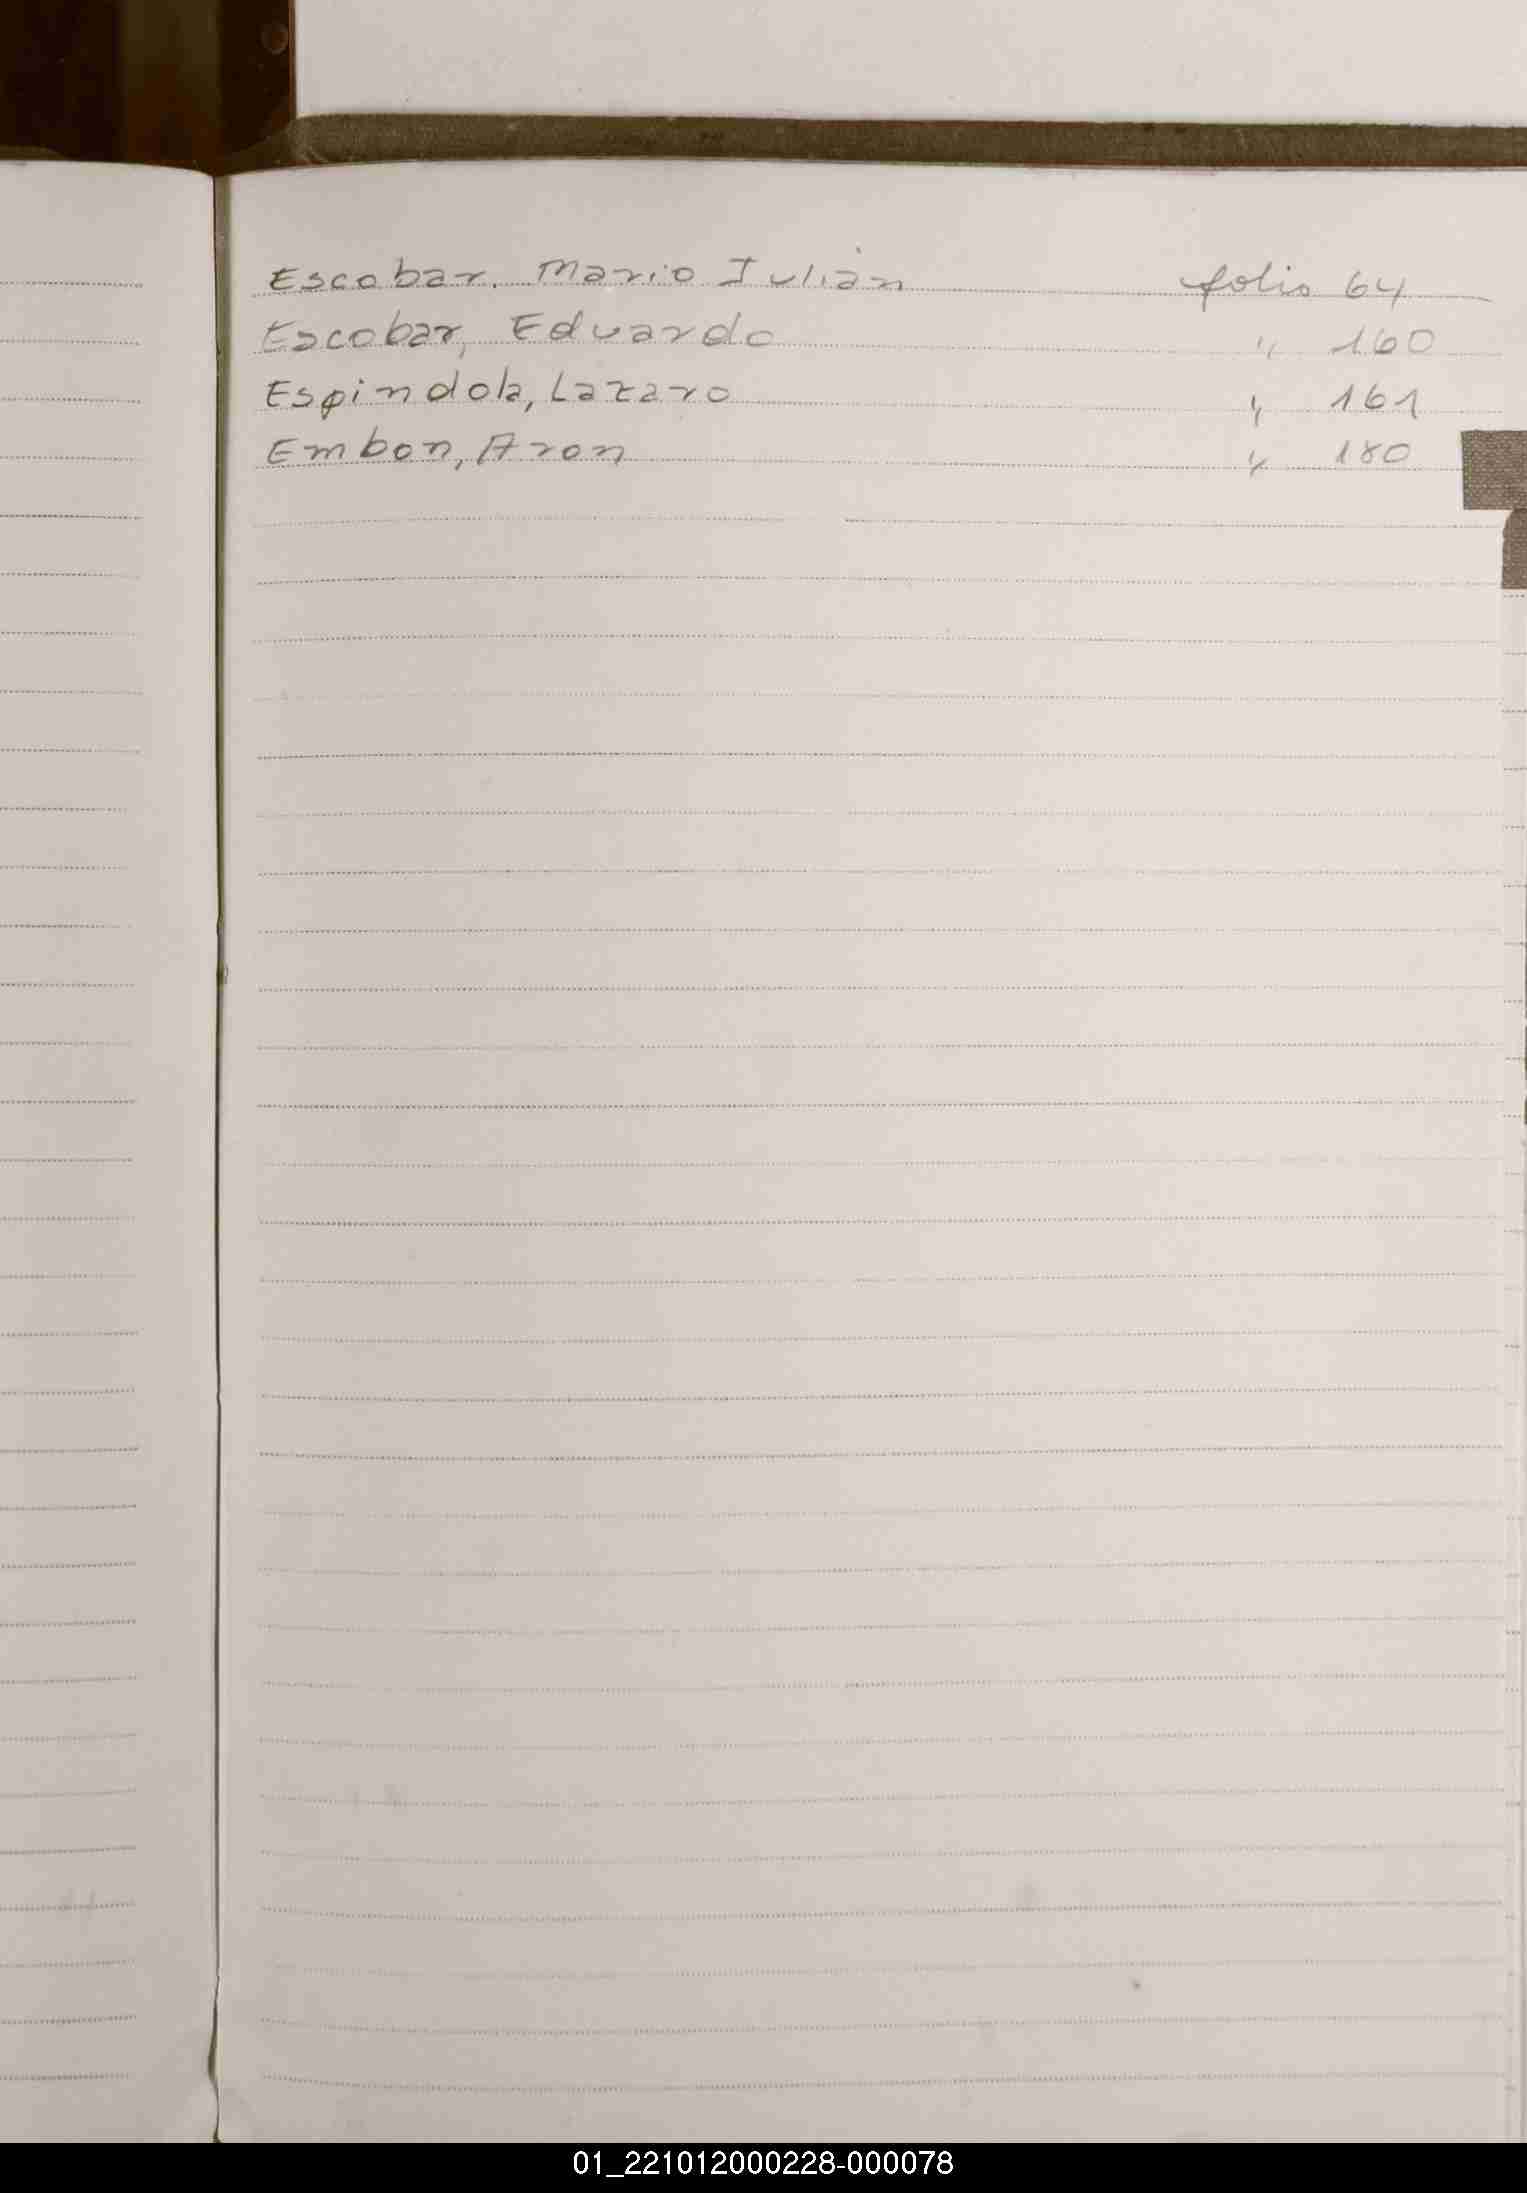 Escobar, Mario Julián folio 64
Escobar, Eduardo " 160
Espindola, Lazaro " 161
Embon, Aron " 180
01_221012000228-000078